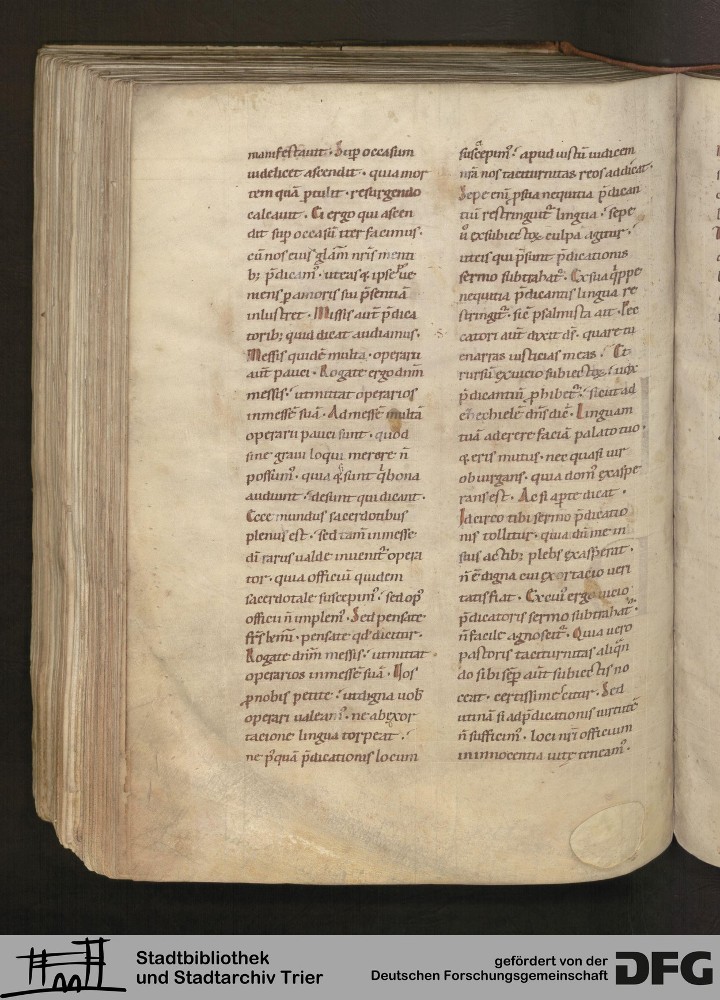 manifestauit · Sup̄ occasum
uidelicet ascendit · quia mor
tem quā p̱tulit · resurgendo
calcauit · Ei ergo qui ascen
dit sup̄ occasū iter facimus ·
cū nos eius gl̄am nr̄is menti
b; p̄dicam᷒ · ut eas & ipse ue
niens p̱ amoris sui p̄sentiā
inlustret · Missis aut̄ p̄dica
torib; quid dicat audiamus ·
Messis quidē multa · operarii
aut̄ pauci · Rogate ergo dnm̄
messis · ut mittat operarios
in messē suā · Ad messē multā
operarii pauci sunt · quod
sine graui loqui merore n̄
possum᷒ · quia & si sunt q̇ bona
audiunt · desunt qui dicant ·
Ecce mundus sacerdotibus
plenus est · sed tam̄ in messe
dī rarus ualde inuenit᷑ opera
tor · quia officiū quidem
sacerdotale suscepim᷒ · sed op᷒
officii n̄ implem᷒ · Sed pensate
fr̄s kmi · pensate qd̄ dicitur ·
Rogate dnm̄ messis · ut mittat
operarios in messē suā · Uos
p̱ nobis petite · ut digna uob̄
operari ualeam᷒ · ne ab exor
tacione lingua torpeat ·
ne p᷒quā p̄dicationis locum
suscepim᷒ · apud iustū iudicem
nr̄a nos taciturnitas reos addicat ·
Sepe enī p̱ sua nequitia p̄dican
tiū restringit᷑ lingua · sepe
ū ex subiectoꝝ culpa agitur ·
ut eis qui p̄sunt p̄dicationis
sermo subtrahat᷑ · Ex sua q̇ppe
nequitia p̄dicantis lingua re
stringit᷑ · sic̄ psalmista ait · Pec
catori aut̄ dixit ds̄ · quare tu
enarras iusticias meas · Et
rursū ex uicio subiectoꝝ · uox
p̄dicantiū p̱hibet᷑ · sicut ad
ezechiele dn̄s dic̄ · Linguam
tuā aderere faciā palato tuo ·
& eris mutus · nec quasi uir
obiurgans · quia dom᷒ exaspe
rans est · Ac si ap̱te dicat ·
Idcirco tibi sermo p̄dicatio
nis tollitur · quia dū me in
suis actib; plebs exasperat ·
n̄ ē digna cui exortacio ueri
tatis fiat · Ex cui᷒ ergo uicio
p̄dicatoris sermo subtrahat᷑ ·
n̄ facile agnoscit᷑ · Quia uero
pastoris taciturnitas aliqn̄
do sibi sēp aut̄ subiectis no
ceat · certissime scitur · Sed
utinā si ad p̄dicationis uirtutē
n̄ sufficim᷒ · loci nr̄i officium
in innocentia uite teneam᷒ ·
Stadtbibliothek
und Stadtarchiv Trier
gefördert von der
Deutschen Forschungsgemeinschaft
DFG